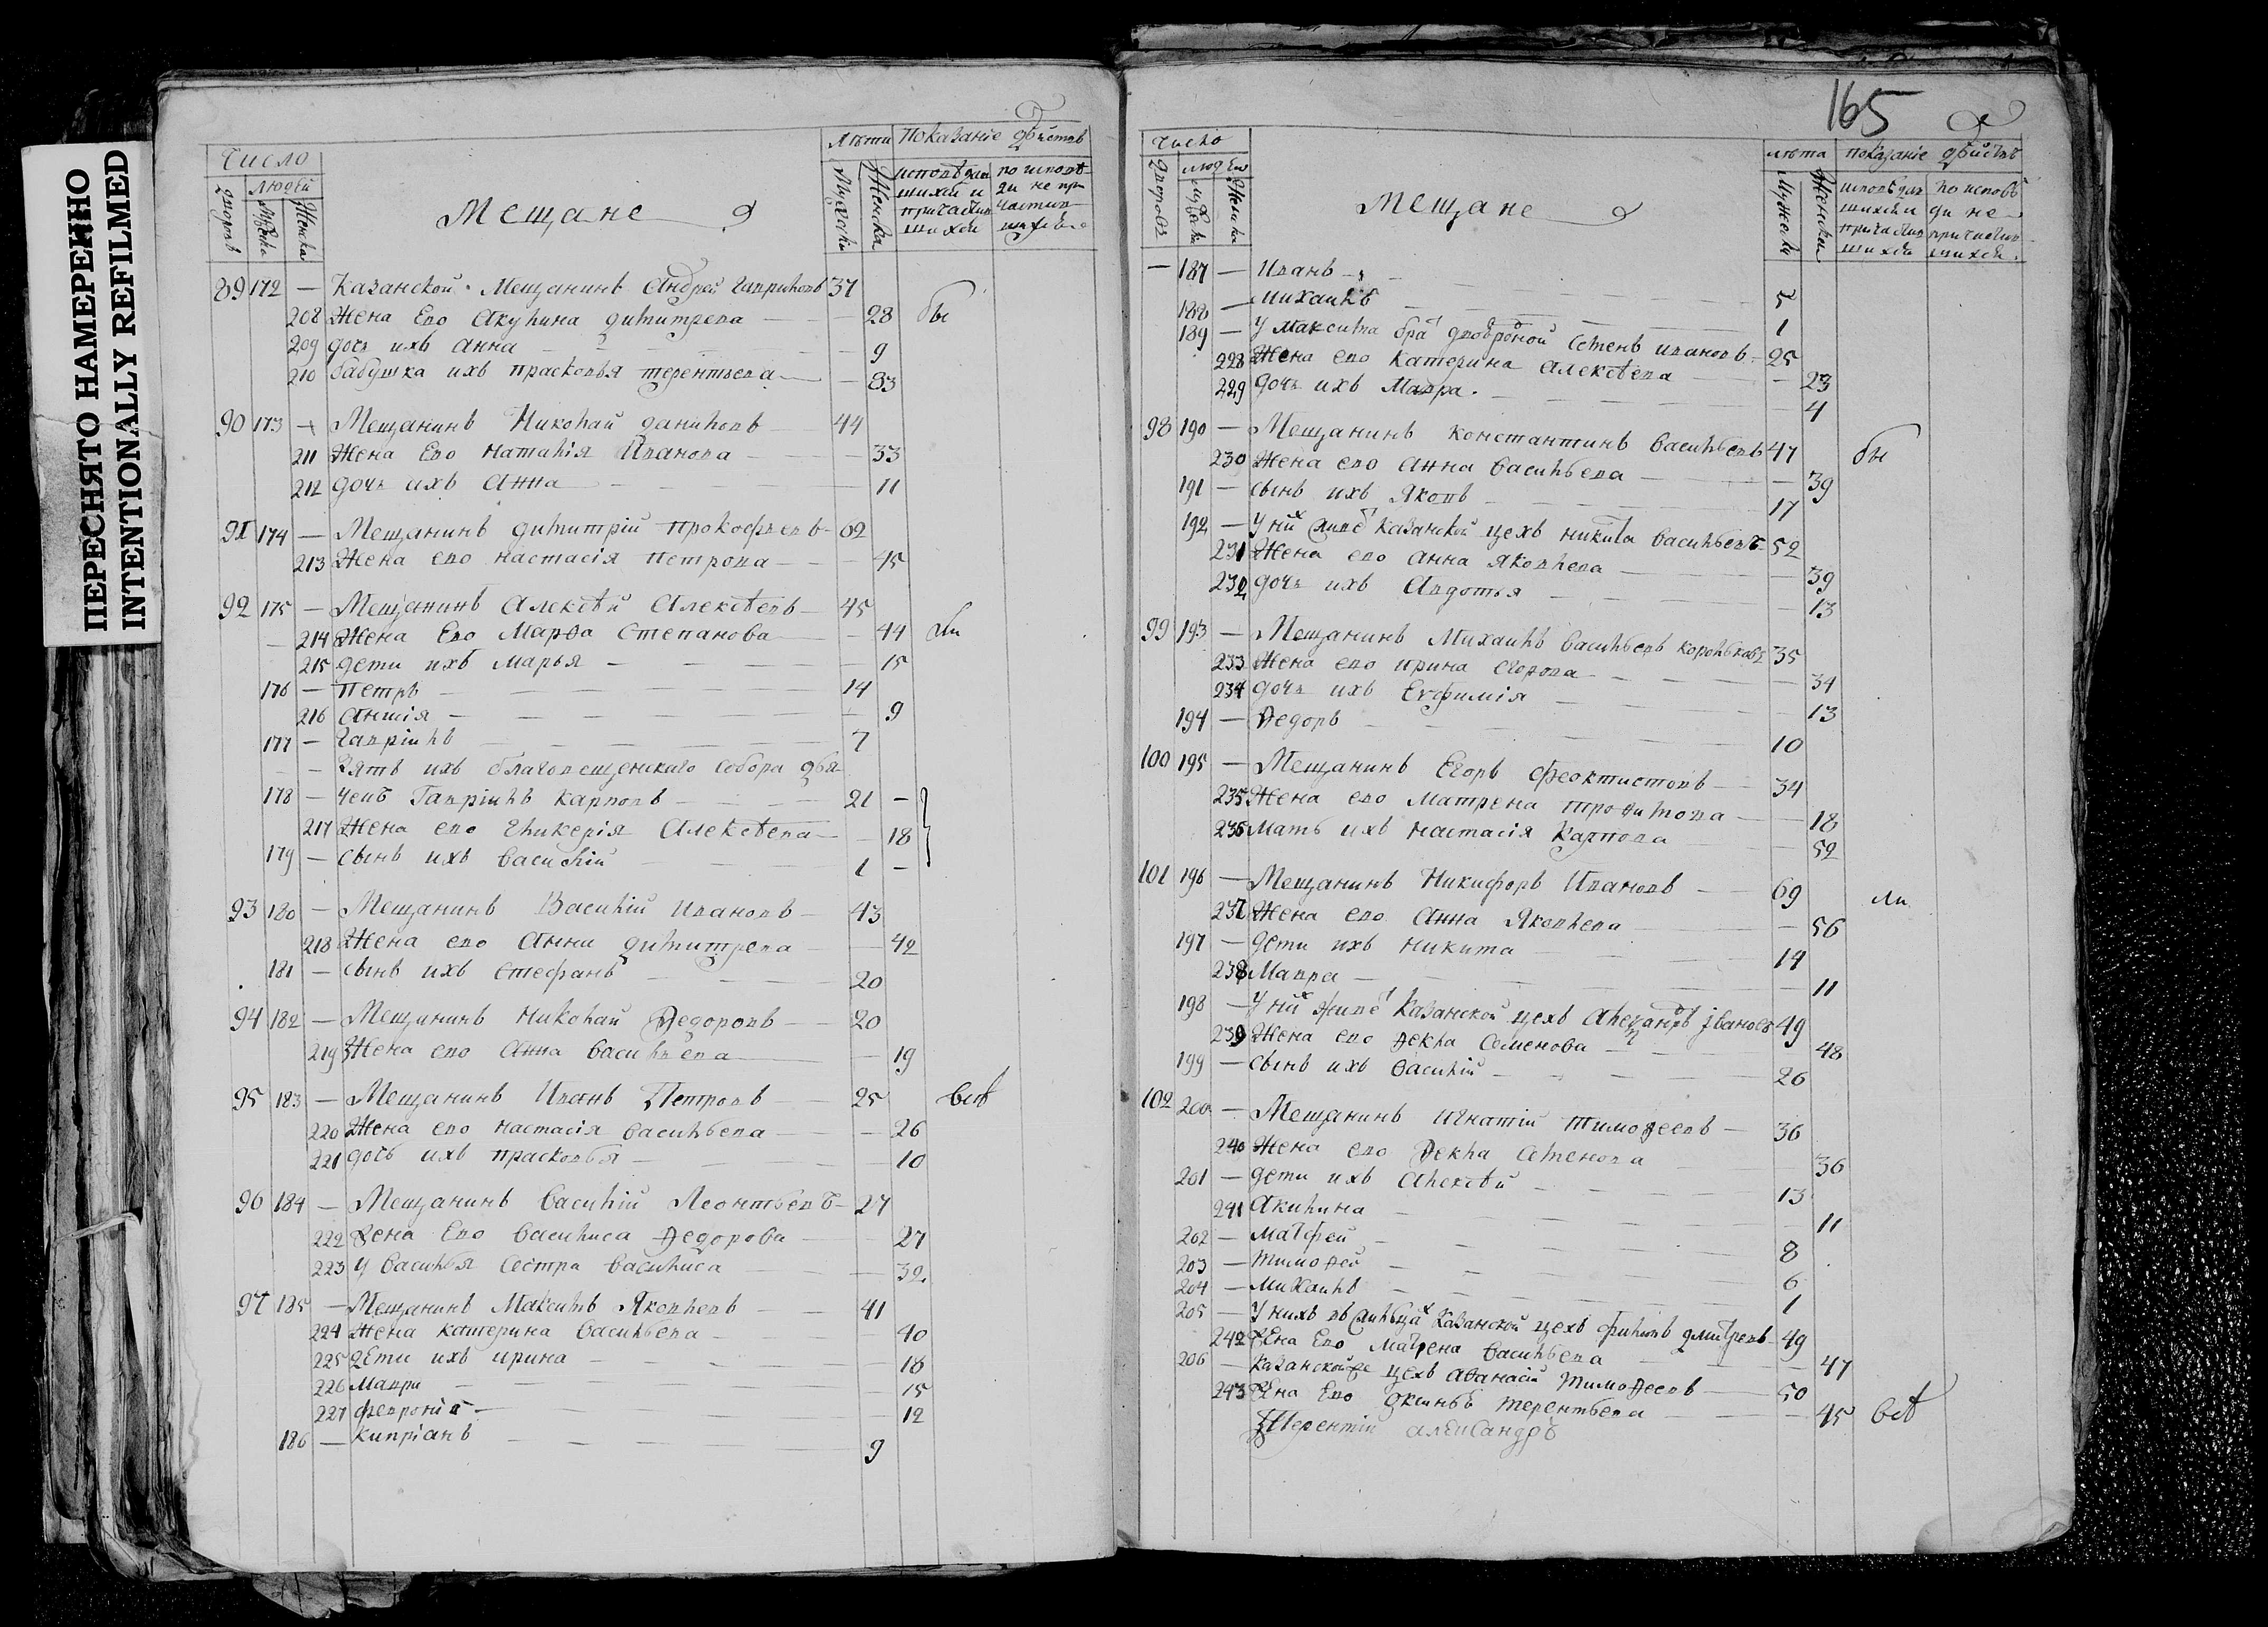 ПЕРЕСНЯТО НАМЕРЕННО
INTENTIONALLY REFILMED
Число
дворовъ
людей
Мужеска
Женска
Мещане
Лѣта
Мужеска
Женска
Показаніе дѣйствъ
исповѣдавшихся и причастившихся
по исповѣди не причастившихся
89 172 — Казанской Мещанинъ Андрей Гавриловъ 37
208 Жена Его Акулина Димитрева — 28 бы
209 дочь ихъ Анна — 9
210 бабушка ихъ Прасковья Терентьева — 83
90 173 — Мещанинъ Николай Даниловъ 44
211 Жена Его Наталія Иванова — 33
212 дочь ихъ Анна — 11
91 174 — Мещанинъ Димитрій Прокофьевъ 62
213 Жена его Настасія Петрова — 45
92 175 — Мещанинъ Алексѣй Алексѣевъ 45
214 Жена Его Марѳа Степанова — 44 ли
215 дети ихъ Марья — 15
176 — Петръ — 14
216 — 9
177 — Гавріилъ — 7
— Зять ихъ Благовещенскаго Собора дья
178 — чекъ Гавріилъ Карповъ — 21 —
217 Жена его Гликерія Алексѣева — 18
179 — сынъ ихъ Василій — 1 —
93 180 — Мещанинъ Василій Ивановъ — 43
218 Жена его Анна Димитрева — 42
181 — сынъ ихъ Стефанъ — 20
94 182 — Мещанинъ Николай Ѳедоровъ — 20
219 Жена его Анна Васильева — 19
95 183 — Мещанинъ Иванъ Петровъ — 25 всѣ
220 Жена его Настасія Васильева — 26
221 дочь ихъ Прасковья — 10
96 184 — Мещанинъ Василій Леонтьевъ — 27
222 Жена Его Василиса Ѳедорова — 27
223 У Василья Сестра Василиса — 32
97 185 — Мещанинъ Максимъ Яковлевъ — 41
224 Жена Катерина Васильева — 40
225 Дети ихъ Ирина — 18
226 Мавра — 15
227 Февронія — 12
186 — Кипріанъ — 9
165
Число
дворовъ
людей
Мужеска
Женска
Мещане
лѣта
Мужеска
Женска
показаніе дѣйствъ
исповѣдавшихся и причастившихся
по исповѣди не причастившихся
— 187 — Иванъ — 5
188 — Михаилъ — 1
189 — У Максима братъ двоюродной Семенъ Ивановъ 25
228 Жена его Катерина Алексѣева — 23
229 дочь ихъ Мавра — 4
98 190 — Мещанинъ Константинъ Васильевъ 47 бы
230 Жена его Анна Васильева — 39
191 — сынъ ихъ Яковъ — 17
192 — У нихъ живетъ Казанской цехъ Никита Васильевъ 52
231 Жена его Анна Яковлева — 39
232 дочь ихъ Авдотья — 13
99 193 — Мещанинъ Михаилъ Васильевъ Корольковъ 35
233 Жена его Ирина Егорова — 34
234 дочь ихъ Евфимія — 13
194 — Ѳедоръ — 10
100 195 — Мещанинъ Егоръ Феоктистовъ — 34
235 Жена его Матрена Трофимова — 18
236 Мать ихъ Настасія Карпова — 52
101 196 — Мещанинъ Никифоръ Ивановъ — 69 ли
237 Жена его Анна Яковлева — 56
197 — дети ихъ Никита — 14
238 Мавра — 11
198 — У нихъ живетъ Казанской цехъ Александръ Івановъ 49
239 Жена его Ѳекла Семенова — 48
199 — Сынъ ихъ Василій — 26
102 200 — Мещанинъ Игнатій Тимоѳеевъ — 36
240 Жена его Ѳекла Семенова — 36
201 — дети ихъ Алексѣй — 13
241 Акилина — 11
202 — Матфей — 8
203 — Тимоѳей — 6
204 — Михаилъ — 1
205 — У нихъ въ жильцахъ Казанской цехъ Филипъ Дмитревъ 49
242 Жена Его Матрена Васильева — 47
206 — Казанской цехъ Аѳанасій Тимоѳеевъ — 50
243 Жена Его Терентьева — 45 всѣ
Терентій Александръ